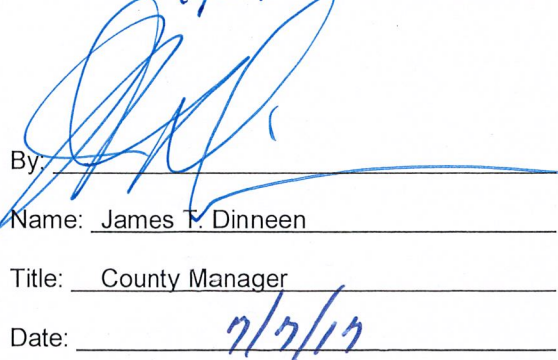 By:
Name: James T. Dinneen
Title: County Manager
Date: 7/7/17